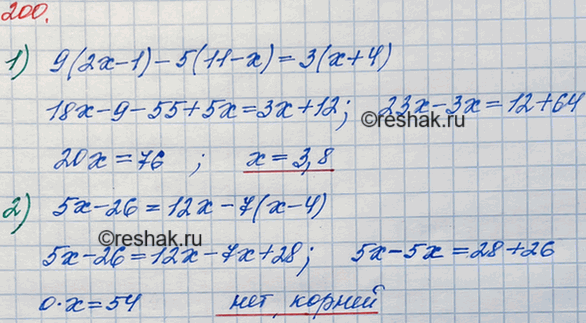 200.
1) 9(2x-1)-5(11-x)=3(x+4)
18x-9-55+5x=3x+12; 23x-3x=12+64
©reshak.ru
20x=76 ; x=3,8
2) 5x-26=12x-7(x-4)
©reshak.ru
5x-26=12x-7x+28; 5x-5x=28+26
0·x=54 нет корней